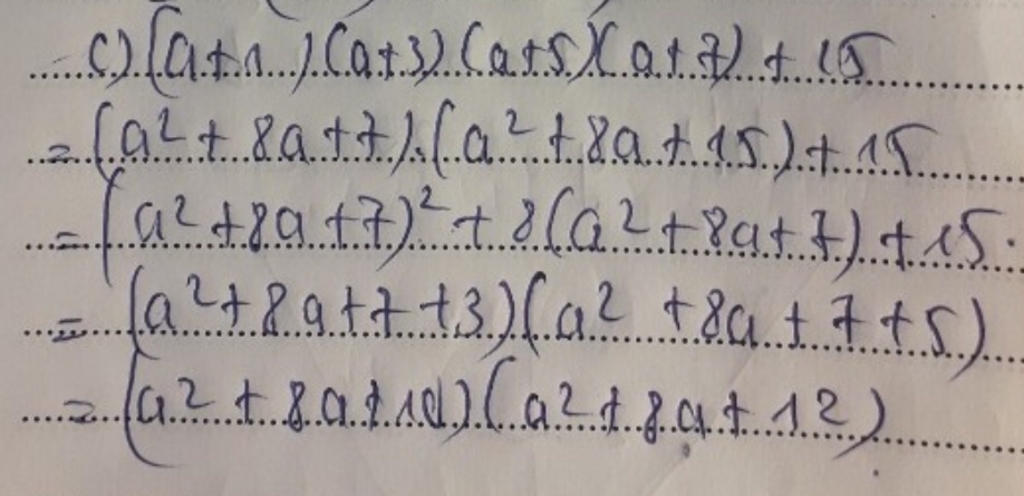 c) (a+1)(a+3)(a+5)(a+7) + 15
= (a² + 8a + 7).(a² + 8a + 15) + 15
= (a² + 8a + 7)² + 8(a² + 8a + 7) + 15.
= (a² + 8a + 7 + 3)(a² + 8a + 7 + 5)
= (a² + 8a + 10)(a² + 8a + 12)